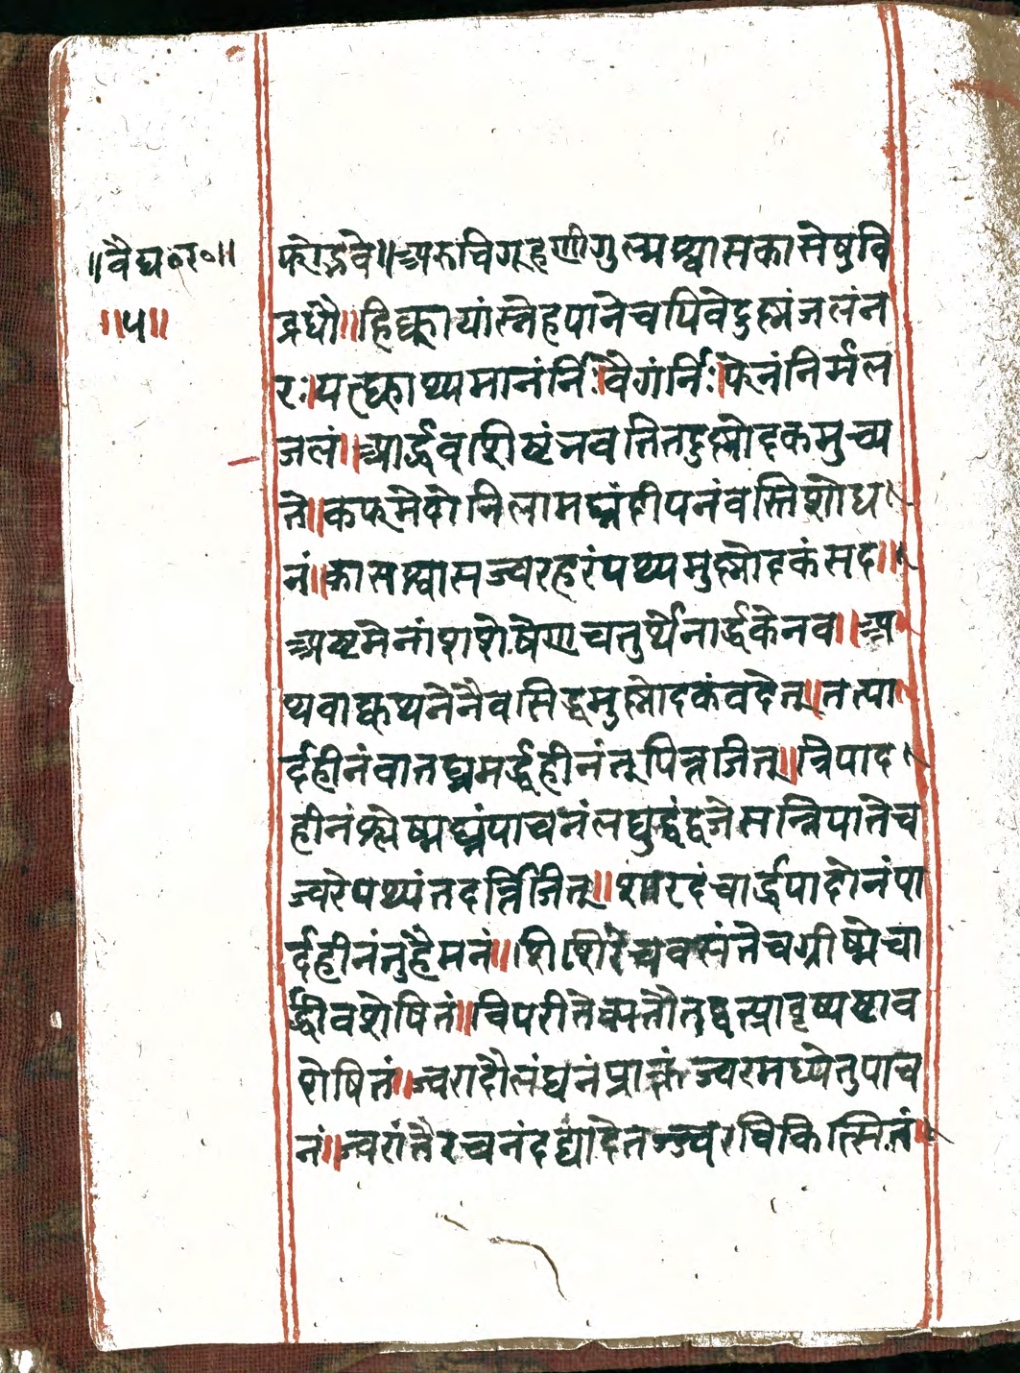 ॥वैद्य०र०॥
॥५॥
फोद्भवे॥अरुचिगृहणीगुल्मश्वासकासेषुवि
द्रधौ॥हिक्कायांस्नेहपानेचपिवेदुष्नंजलंन
रः॥यत्क्काथ्यमानंर्निःवेगंर्निःफेनंनिर्मल
जलं॥आर्द्धवशिष्टंनवतितदुष्नोदकमुच्य
ते॥कफमेदोनिलामघ्नंदीपनंवस्तिशोध
नं॥कासश्वासज्वरहरंपथ्यमुष्नोदकंसद॥
अष्टमेनांशशेषेणचतुर्थेनार्द्धकेनव॥अ
थवाक्कथनेनैवसिद्धमुष्नोदकंवदेत्॥तत्पा
र्दहीनंवातघ्नमर्द्धहीनंतुपित्तजित्॥त्रिपाद
हीनंश्लेष्मघ्नंपाचनंलघुद्वंद्वजेसन्निपातेच
ज्वरेपथ्यंतदर्त्तिजित्॥शारदंचार्द्धपादोनंपा
र्दहीनंतुहैमनं॥शिशिरेचवसंतेचग्रीष्मेचा
र्द्धावशेषितं॥विपरीतेक्यतौतद्वत्प्रावृष्यष्टाव
शेषितं॥ज्वरादौलंघनंप्राक्तंज्वरमध्येतुपाच
नं॥ज्वरांतेरेचनंदद्यादेतज्ज्वरचिकित्सितं॥